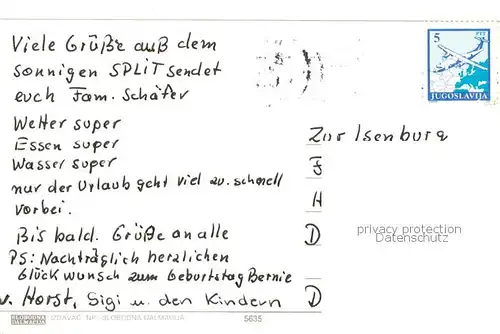 Viele Grüße auß dem
sonnigen SPLIT sendet
euch Fam. Schäfer
Wetter super
Essen super
Wasser super
nur der Urlaub geht viel zu schnell
vorbei.
Bis bald. Grüße an alle
PS: Nachträglich herzlichen
Glückwunsch zum Geburtstag Bernie
v. Horst, Sigi u. den Kindern
5
PTT
JUGOSLAVIJA
Zur Isenburg
F
H
D
D
privacy protection
Datenschutz
SLOBODNA
DALMACIJA
IZDAVAČ NP SLOBODNA DALMACIJA
5635